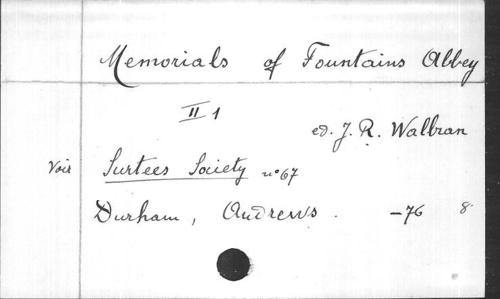 Memorials of Fountains Abbey
II 1
ed. J. R. Walbran
Voir Surtees Society nº 67
Durham, Andrews. -76 8º